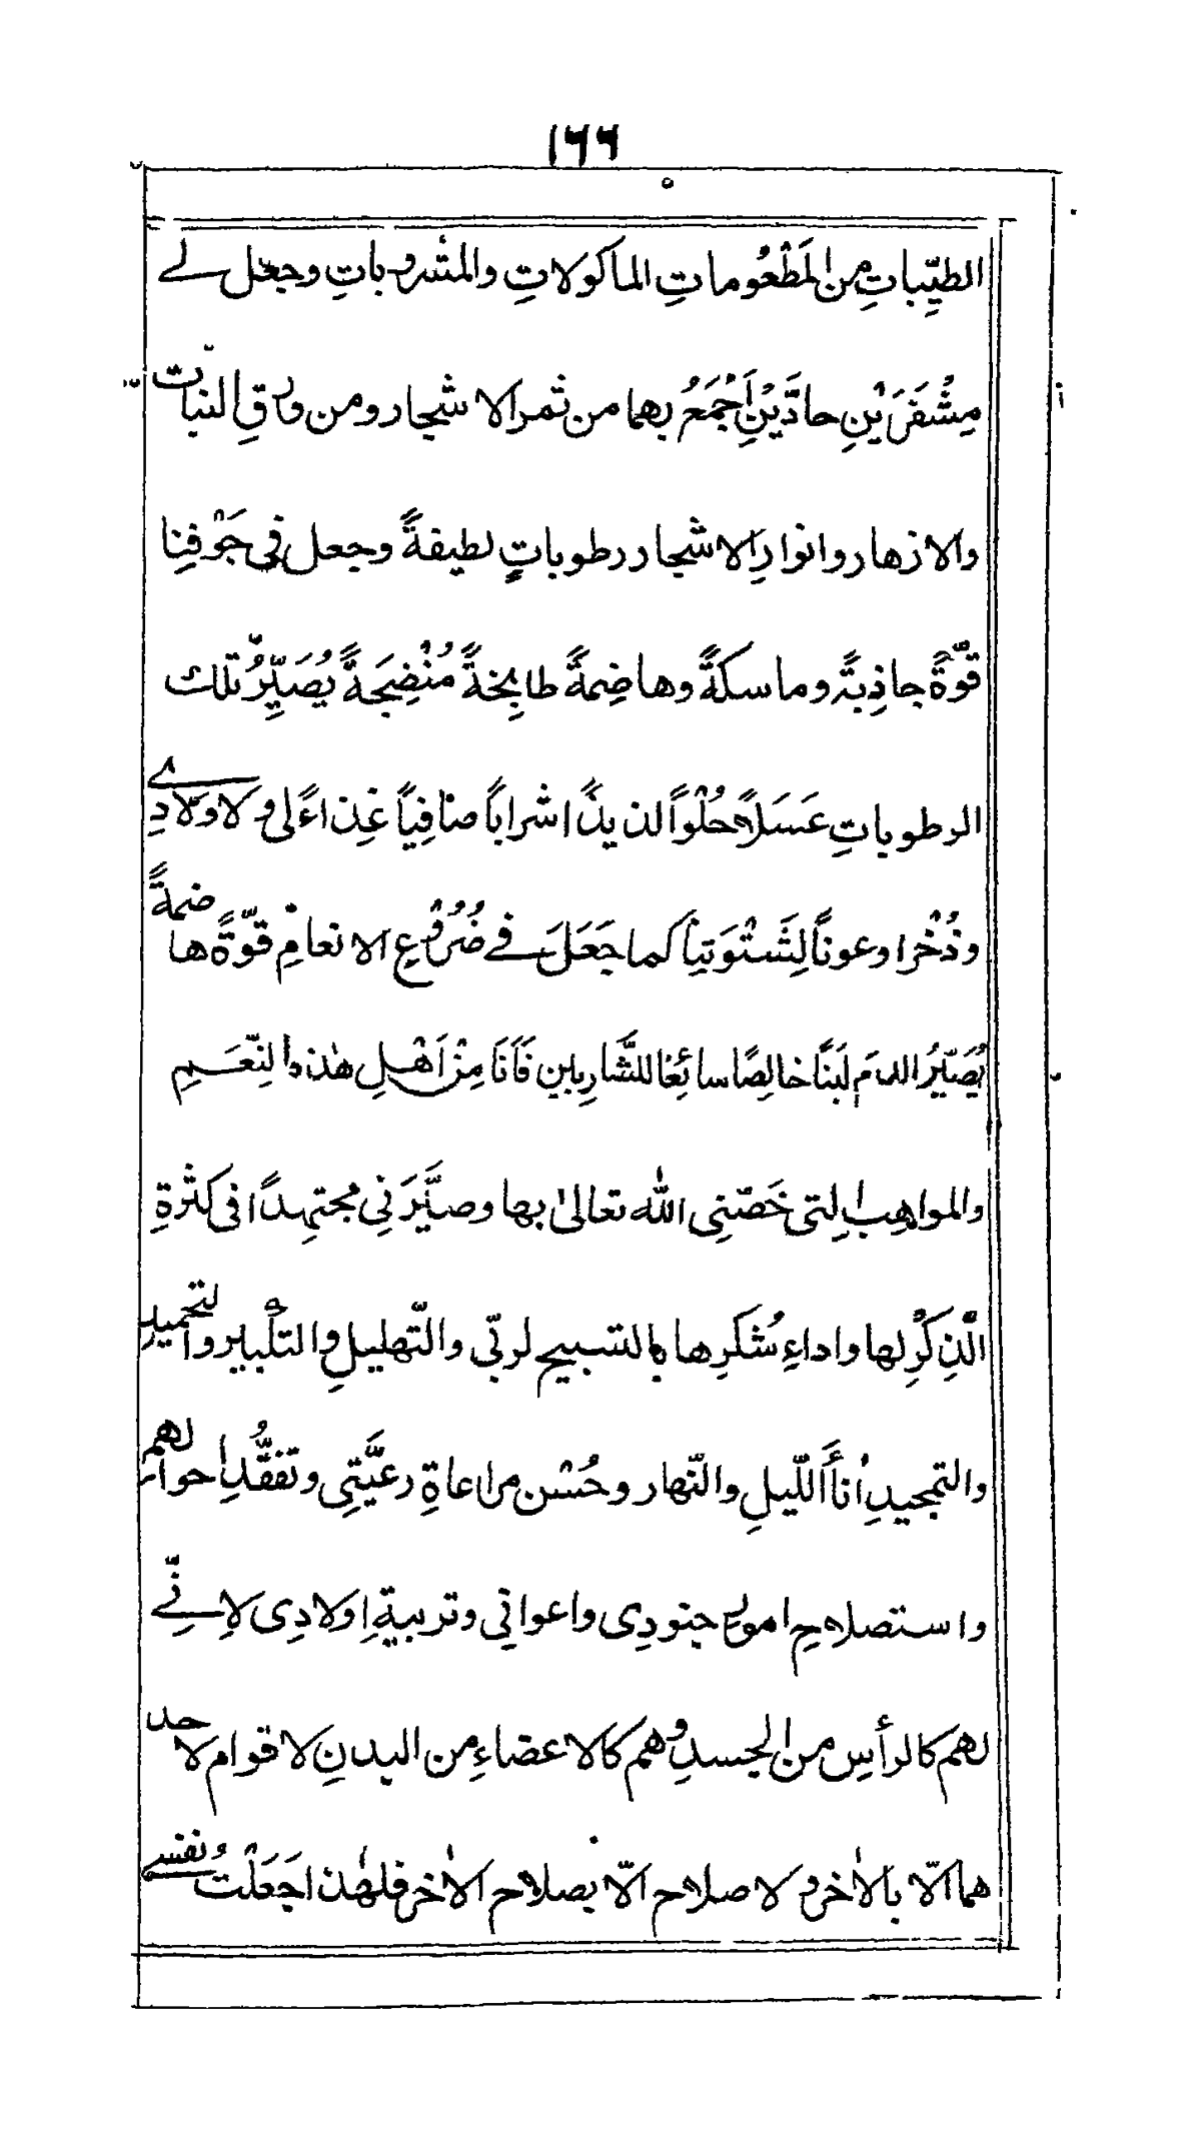 ١٦٦
الطيِّباتِ من المَطْعُوماتِ الماكولاتِ والمشروباتِ وجعل لے
مِشْفَرَيْنِ حادَّيْنِ اَجْمَعُ بهما من ثمر الاشجار ومن ورقِ النبات
والازهار وانوارِ الاشجار رطوباتٍ لطيفةً وجعل فى جَوْفِنا
قوّةً جاذِبةً وماسكةً وهاضِمةً طابِخةً مُنْضِجَةً يُصَيِّرُ تلك
الرطوباتِ عَسَلاً حُلْواً لذيذًا شراباً صافِياً غِذاءً لى ولاولادِے
وذُخْرا وعوناً لِشَتْوَتِنا كما جَعَلَ فے ضُرُوعِ الانعامِ قوّةً هاضمةً
يُصَيِّرُ الدمَ لَبَنًا خالِصًا سائِغًا للشَّارِبين فَاَنَا مِنْ اَهْلِ هٰذه النِّعَمِ
والمواهِبِ التى خَصّنِى اللّٰه تعالىٰ بها وصيَّرَنِى مجتهِدًا فى كثرةِ
الّذِكْرِ لها واداءِ شُكرِها بالتسبيح لربّى والتّهليلِ والتكبير والتحميدِ
والتمجيدِ اٰناءَ اللّيلِ والنّهار وحُسْن مراعاةِ رعيَّتِى وتفقُّدِ احوالهم
واستصلاحِ امورِ جنودِى واعوانِى وتربيةِ اولادِى لاِنِّے
لهم كالرأسِ من الجسدِ وهم كالاعضاءِ من البدنِ لاقوام لاحد
هما الّا بالاٰخر ولاصلاح الّا بصلاح الاٰخر فلهٰذا جَعَلْتُ نفسے